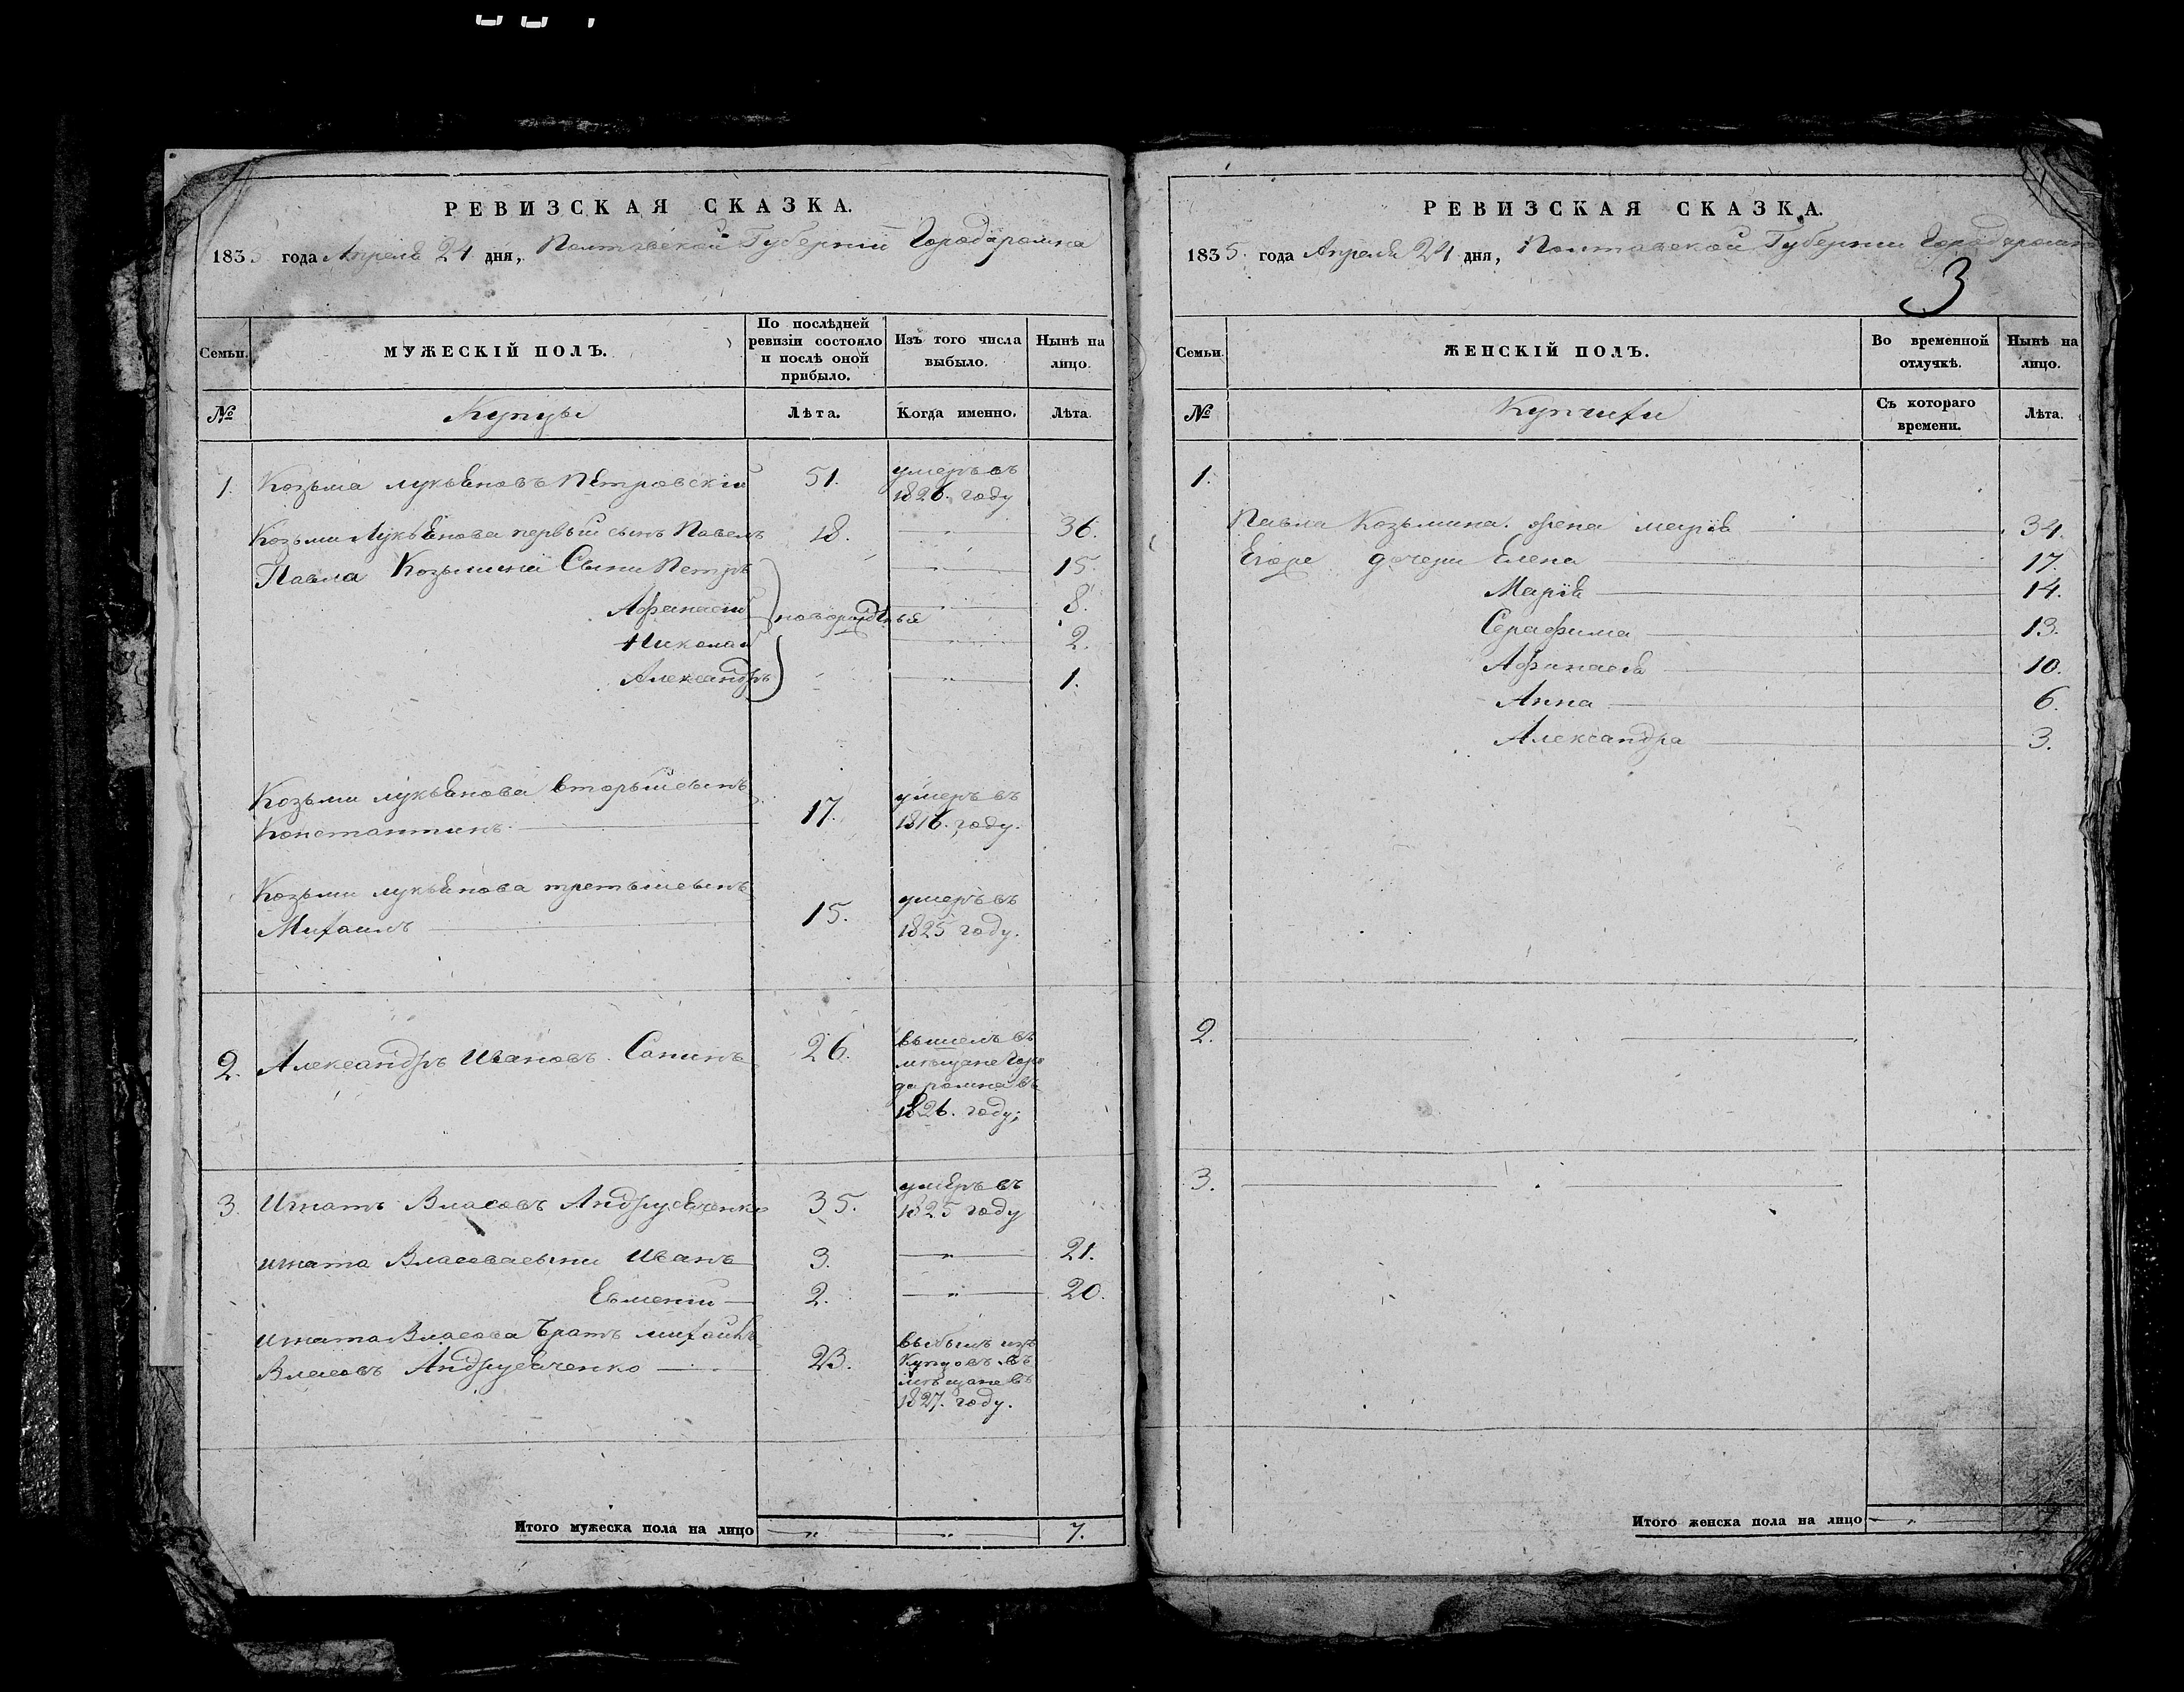 РЕВИЗСКАЯ СКАЗКА.
1835 года Апреля 24 дня, Полтавской Губернїи Города ромна
Семьи.
МУЖЕСКІЙ ПОЛЪ.
По послѣдней ревизіи состояло и послѣ оной прибыло.
Изъ того числа выбыло.
Нынѣ на лицо.
№ Купцы Лѣта. Когда именно. Лѣта.
1. Козьма лукьяновъ Петровскій 51. умеръ въ
1826. году
Козьми Лукьянова первый сынъ Павелъ 18. — „ — 36.
Павла Козьмина Сыни Петръ — „ — 15.
Афанасий новорожденыя — „ — 8.
Николай — „ — 2.
Александръ — „ — 1.
Козьми лукьянова вторый сынъ умеръ въ
Константинъ 17. 1816. году.
Козьми лукьянова третый сынъ умеръ въ
Михаилъ 15. 1825 году.
2. Александръ Ивановъ. 26. вышелъ въ
мѣщане Горо
да ромна въ
1826. году;
3. Игнатъ Власовъ Андрусевченко 35. умеръ въ
1825 году
игната Власова сыни Иванъ 3. — „ — 21.
Евмений 2. — „ — 20.
игната Власова братъ михаилъ выбылъ изъ
Власовъ Андрусевченко 23. Купцовъ въ
мѣщане въ
1827. году.
Итого мужеска пола на лицо — „ — — „ — 7.
РЕВИЗСКАЯ СКАЗКА.
1835. года Апреля 24 дня, Полтавской Губернии Города ромна
3
Семьи.
ЖЕНСКІЙ ПОЛЪ.
Во временной отлучкѣ.
Нынѣ на лицо.
№ Купчихи Съ котораго времени. Лѣта.
1.
Павла Козьмина. жена марія 34.
Егоже дочери Елена 17.
Марія 14.
Серафима 13.
Афанасія 10.
Анна 6.
Александра 3.
2.
3.
Итого женска пола на лицо — „ — 7